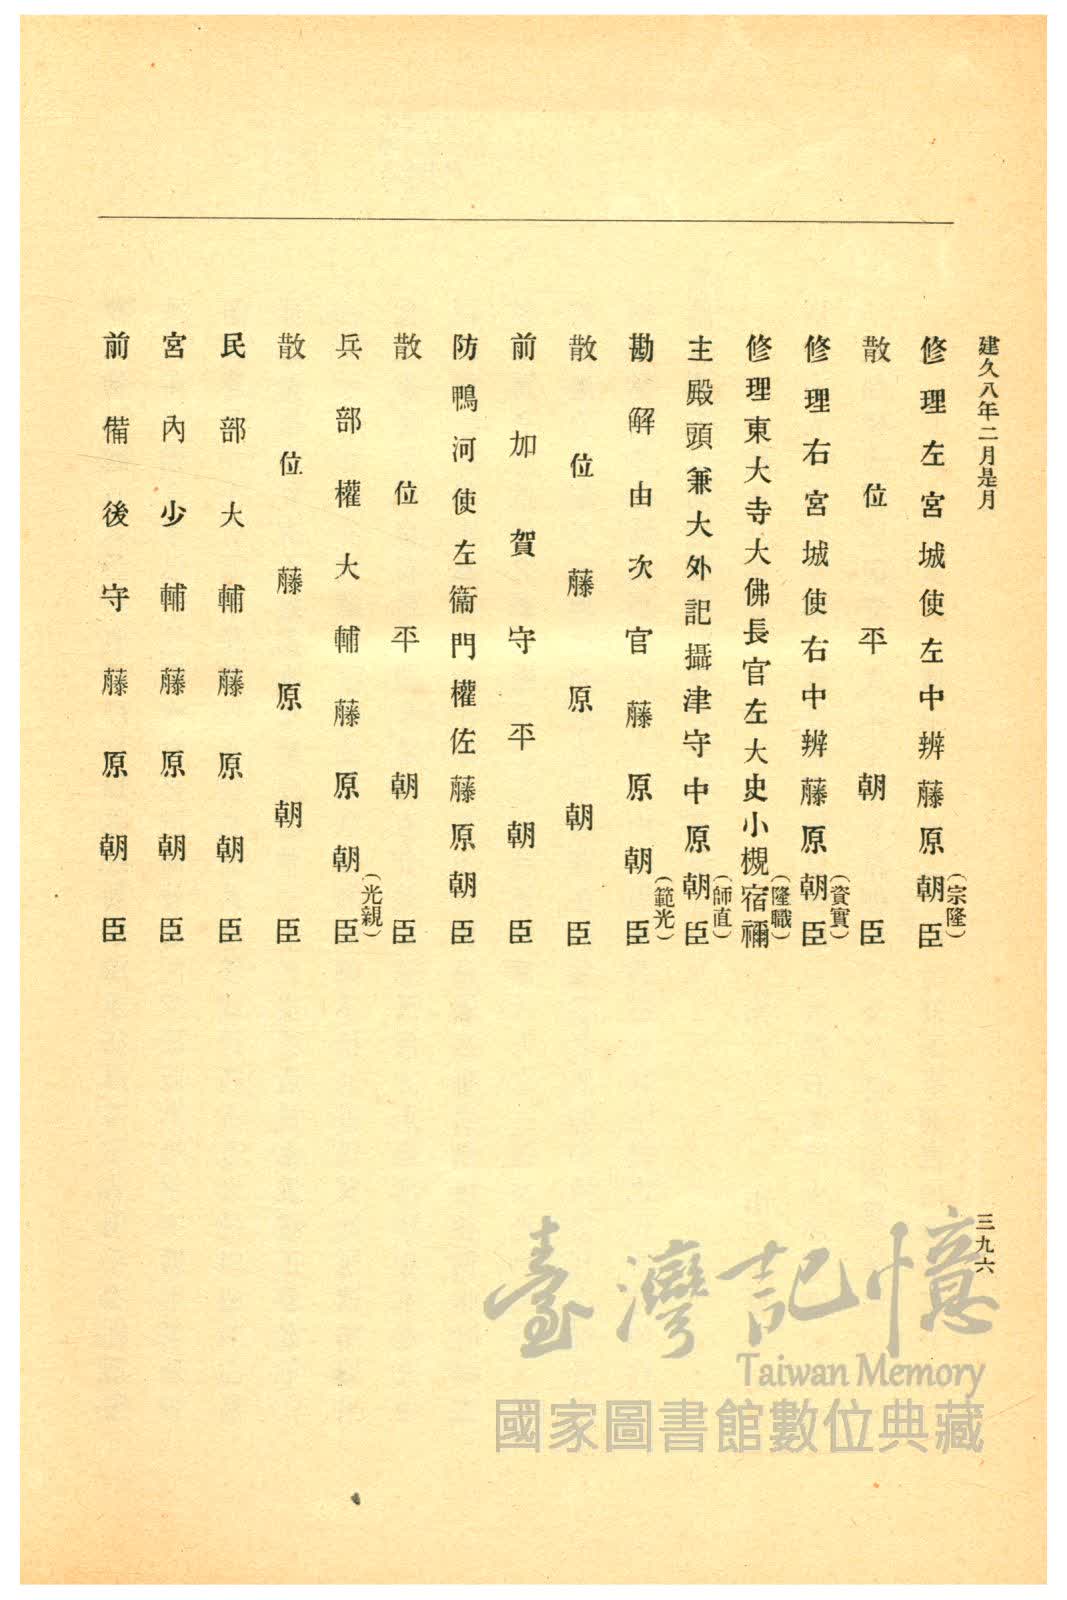 建久八年二月是月
修理左宮城使左中辨藤原朝臣
(宗隆)
散位平朝臣
修理右宮城使右中辨藤原朝臣
(資實)
修理東大寺大佛長官左大史小槻宿禰
(隆職)
主殿頭兼大外記攝津守中原朝臣
(師直)
勘解由次官藤原朝臣
(範光)
散位藤原朝臣
前加賀守平朝臣
防鴨河使左衞門權佐藤原朝臣
散位平朝臣
兵部權大輔藤原朝臣
(光親)
散位藤原朝臣
民部大輔藤原朝臣
宮內少輔藤原朝臣
前備後守藤原朝臣
三九六
臺灣記憶
Taiwan Memory
國家圖書館數位典藏